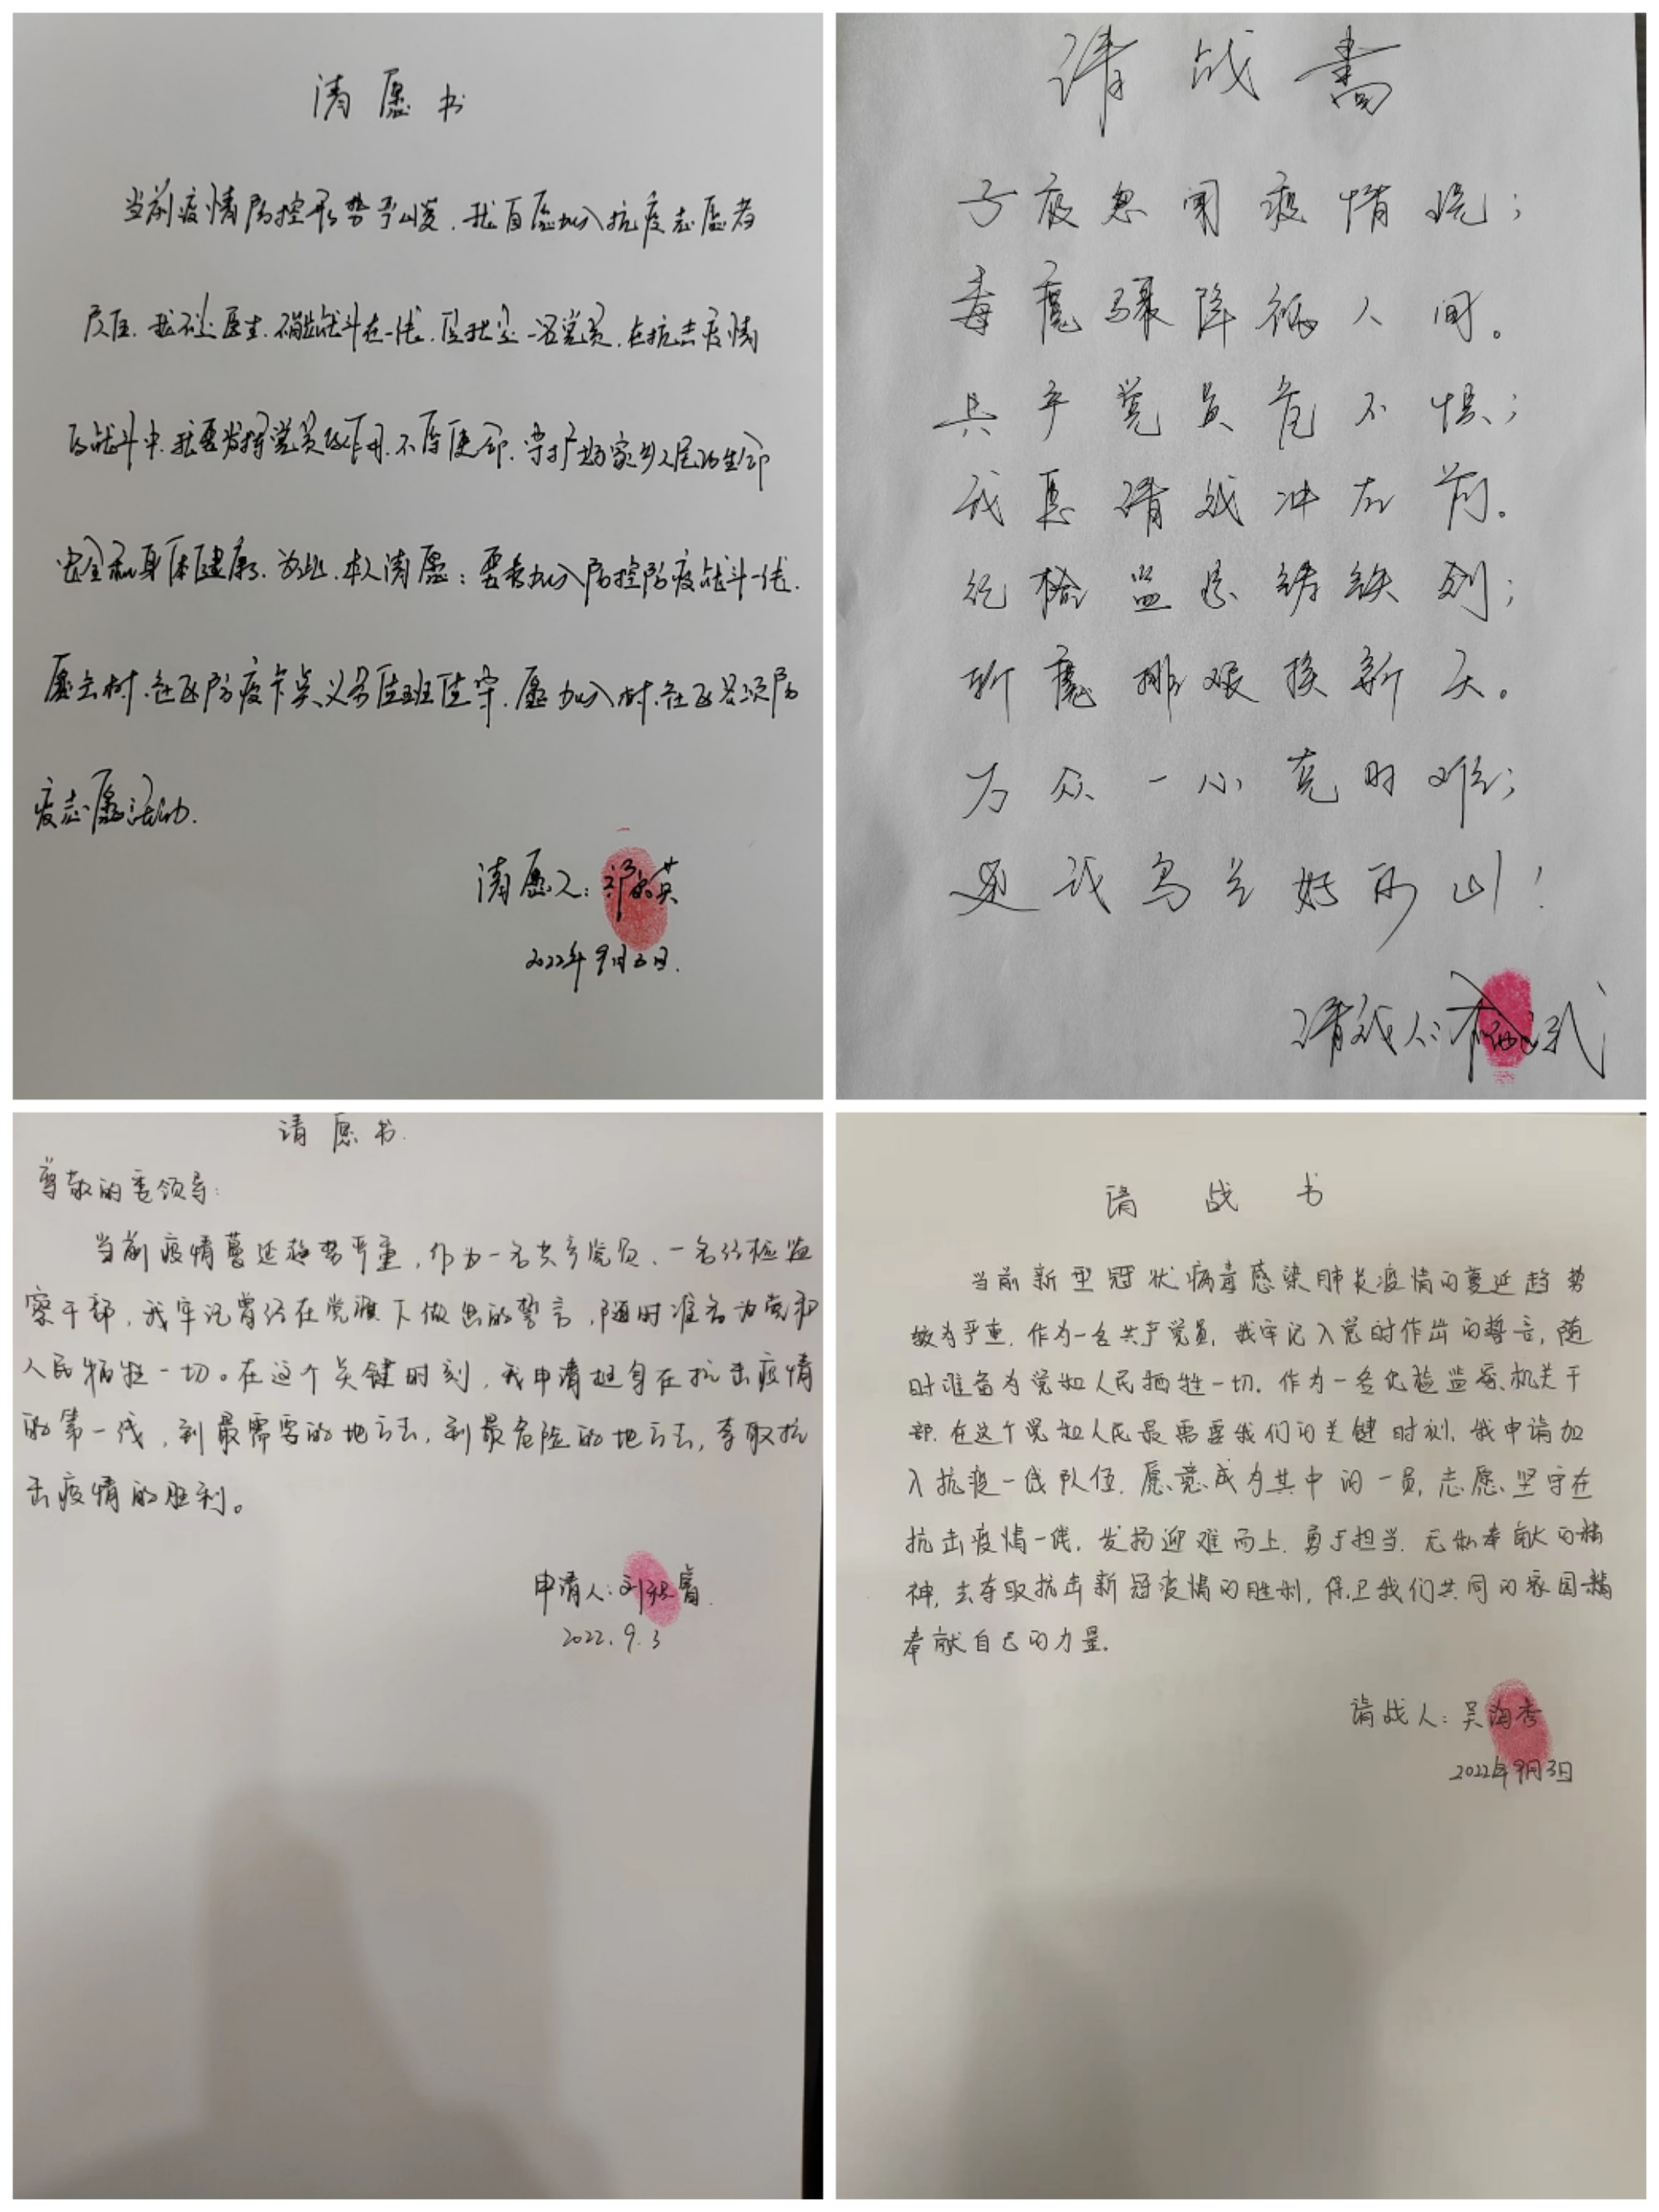 请愿书
当前疫情防控形势严峻,我自愿加入抗疫志愿者
反压,我不是医生,不能战斗在一线,但我是一名党员,在抗击疫情
的战斗中,我要发挥党员的作用,不辱使命,守护好家乡人民的生命
安全和身体健康。为此,本人请愿:要求加入防控防疫战斗一线.
愿去村.社区防疫卡点义务值班值守.愿加入村.社区各项防
疫志愿活动.
请愿人:英
2022年9月3日.
请战書
子夜忽闻疫情现;
毒魔骤降祸人间。
共产党员危不惧;
我愿请战冲在前。
纪检监察铸铁剑;
斩魔排艰换新天。
为众一心克时难;
还我乌兰好河山!
请战人:
请愿书.
尊敬的委领导:
当前疫情蔓延趋势严重,作为一名共产党员、一名纪检监
察干部,我牢记曾经在党旗下做出的誓言,随时准备为党和
人民牺牲一切。在这个关键时刻,我申请挺身在抗击疫情
的第一线,到最需要的地方去,到最危险的地方去,争取抗
击疫情的胜利。
申请人:刘睿.
2022.9.3
请战书
当前新型冠状病毒感染肺炎疫情的蔓延趋势
较为严重.作为一名共产党员,我牢记入党时作出的誓言,随
时准备为党和人民牺牲一切.作为一名纪检监委机关干
部.在这个党和人民最需要我们的关键时刻,我申请加
入抗疫一线队伍.愿意成为其中的一员,志愿坚守在
抗击疫情一线,发扬迎难而上.勇于担当.无私奉献的精
神,去争取抗击新冠疫情的胜利,保卫我们共同的家园
奉献自己的力量.
请战人:吴海秀
2022年9月3日